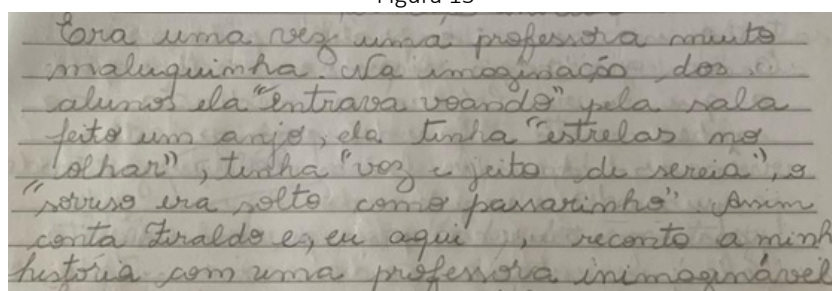 Era uma vez uma professora muito
maluquinha. Na imaginação dos
alunos ela "entrava voando" pela sala
feito um anjo, ela tinha "estrelas no
olhar", tinha "voz e jeito de sereia", o
"sorriso era solto como passarinho". Assim
conta Ziraldo e, eu aqui, reconto a minh
história com uma professora inimaginável